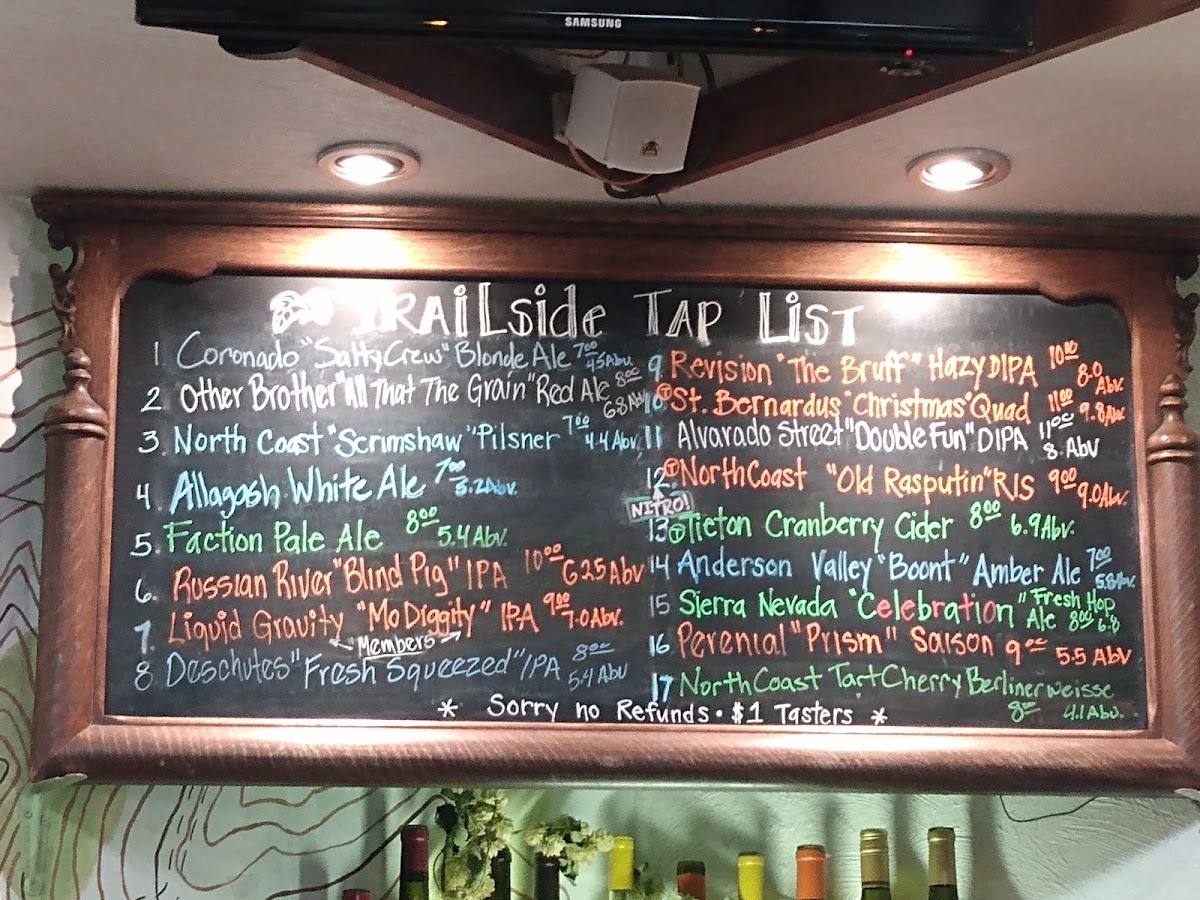 SAMSUNG
TRAiLside TAP LiST
1 Coronado "Salty Crew" Blonde Ale 7.00 4.5 Abv.
2. Other Brother "All That The Grain" Red Ale 8.00 6.8 Abv
3. North Coast "Scrimshaw" Pilsner 7.00 4.4 Abv.
4. Allagash White Ale 7.00 5.2 Abv.
5. Faction Pale Ale 8.00 5.4 Abv.
6. Russian River "Blind Pig" IPA 10.00 6.25 Abv
7. Liquid Gravity "Mo Diggity" IPA 9.00 7.0 Abv.
"Members"
8 Deschutes "Fresh Squeezed" IPA 8.00 5.4 Abv
9. Revision "The Bruff" Hazy DIPA 10.00 8.0 Abv.
10 T St. Bernardus "Christmas" Quad 11.00 9.8 Abv.
11 Alvarado Street "Double Fun" DIPA 11.00 8. Abv
12. T North Coast "Old Rasputin" RIS 9.00 9.0 Abv.
NITRO!
13 T Tieton Cranberry Cider 8.00 6.9 Abv.
14 Anderson Valley "Boont" Amber Ale 7.00 5.8 Abv.
15 Sierra Nevada "Celebration" Fresh Hop Ale 8.00 6.8
16 Perenial "Prism" Saison 9.00 5.5 Abv
17 North Coast Tart Cherry Berliner weisse
8.00 4.1 Abv.
* Sorry no Refunds • $1 Tasters *